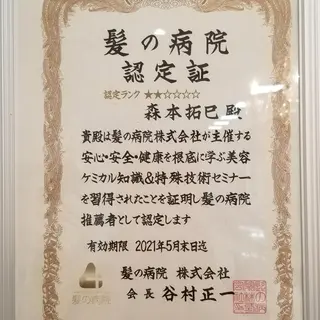 髪の病院
認定証
認定ランク ★★☆☆☆☆
森本拓巳 殿
貴殿は髪の病院株式会社が主催する
安心・安全・健康を根底に学ぶ美容
ケミカル知識&特殊技術セミナー
を習得されたことを証明し髪の病院
推薦者として認定します
有効期限 2021年5月末日迄
髪の病院 株式会社
会長 谷村正一
髪の病院